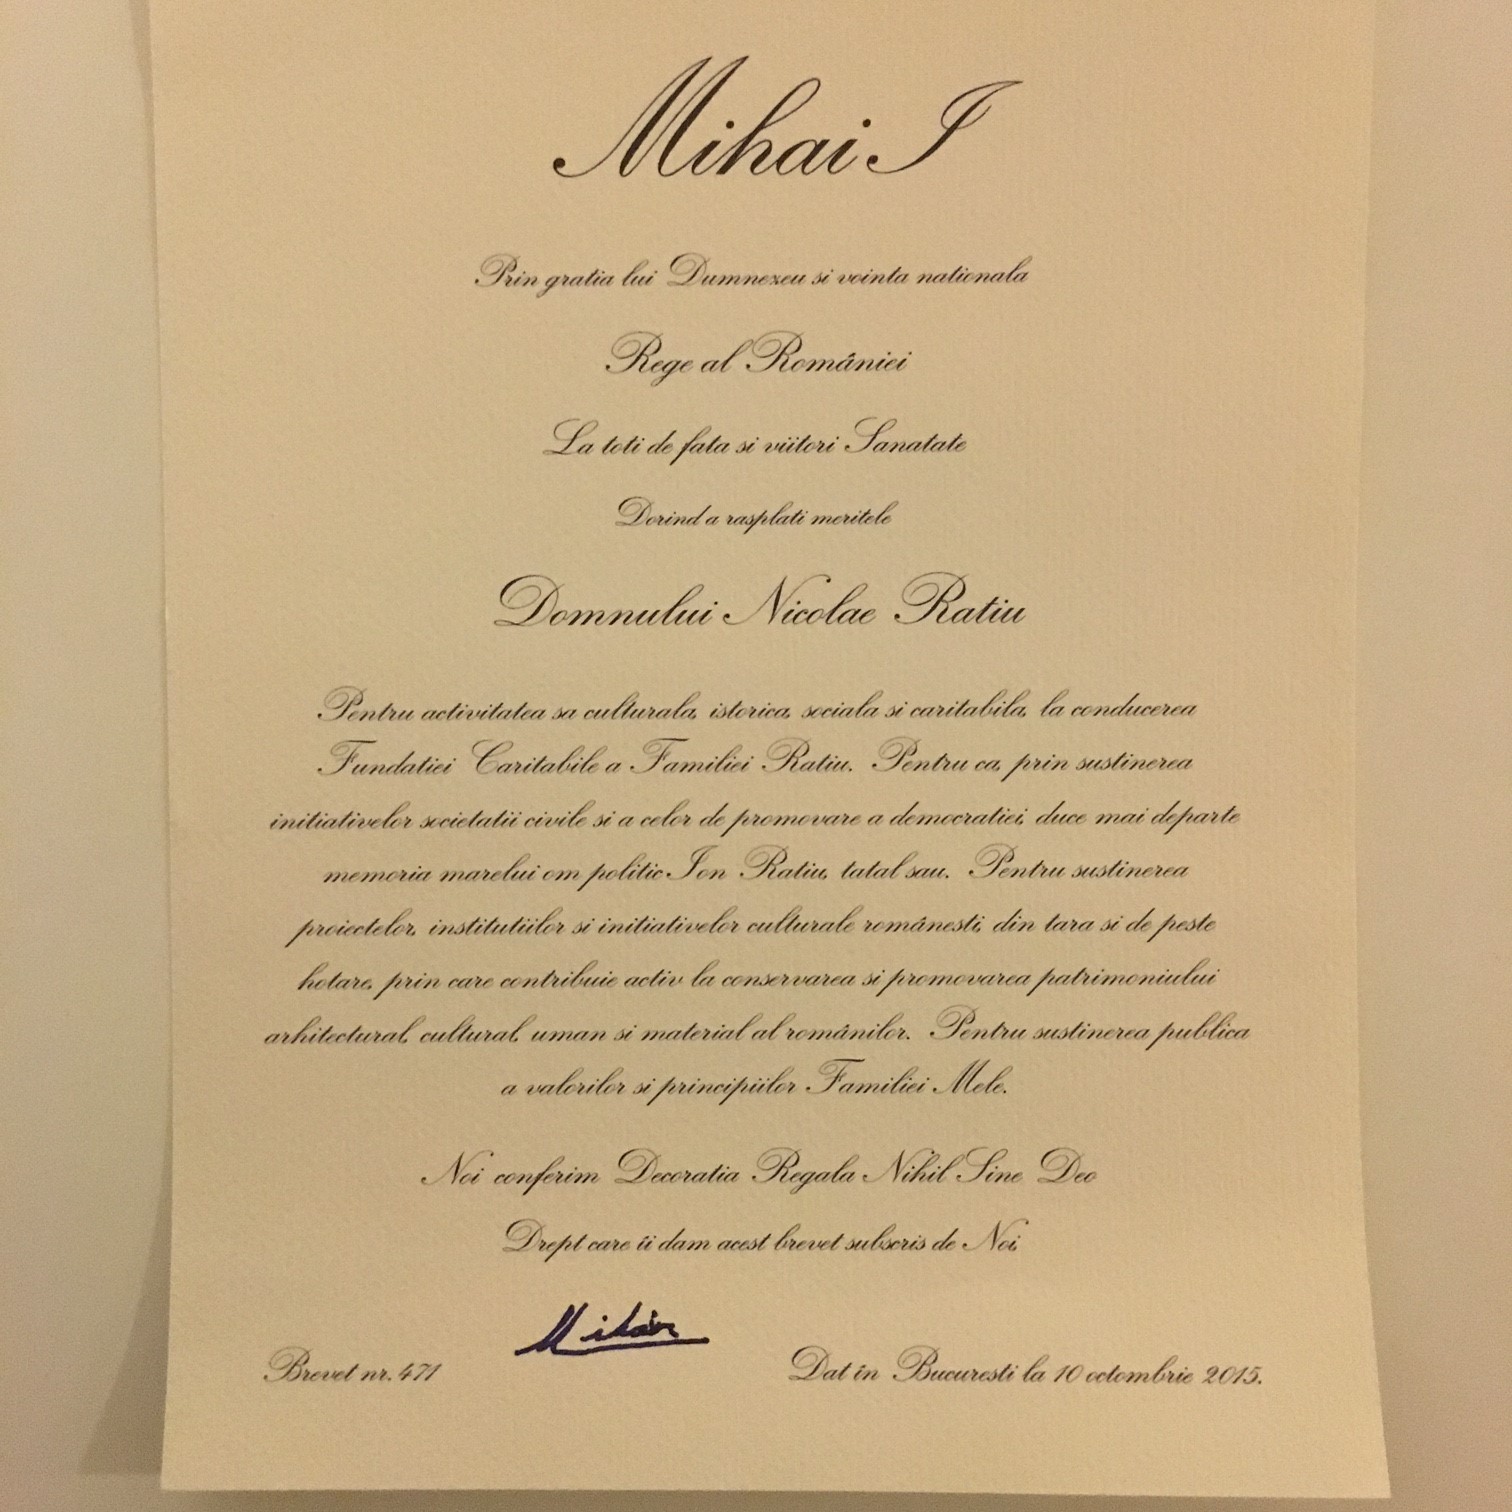 Mihai I
Prin gratia lui Dumnezeu si vointa nationala
Rege al României
La toti de fata si viitori Sanatate
Dorind a rasplati meritele
Domnului Nicolae Ratiu
Pentru activitatea sa culturala, istorica, sociala si caritabila, la conducerea
Fundatiei Caritabile a Familiei Ratiu. Pentru ca, prin sustinerea
initiativelor societatii civile si a celor de promovare a democratiei, duce mai departe
memoria marelui om politic Ion Ratiu, tatal sau. Pentru sustinerea
proiectelor, institutiilor si initiativelor culturale românesti, din tara si de peste
hotare, prin care contribuie activ la conservarea si promovarea patrimoniului
arhitectural, cultural, uman si material al românilor. Pentru sustinerea publica
a valorilor si principiilor Familiei Mele.
Noi conferim Decoratia Regala Nihil Sine Deo
Drept care îi dam acest brevet subscris de Noi,
Mihai
Brevet nr. 471 Dat în Bucuresti la 10 octombrie 2015.